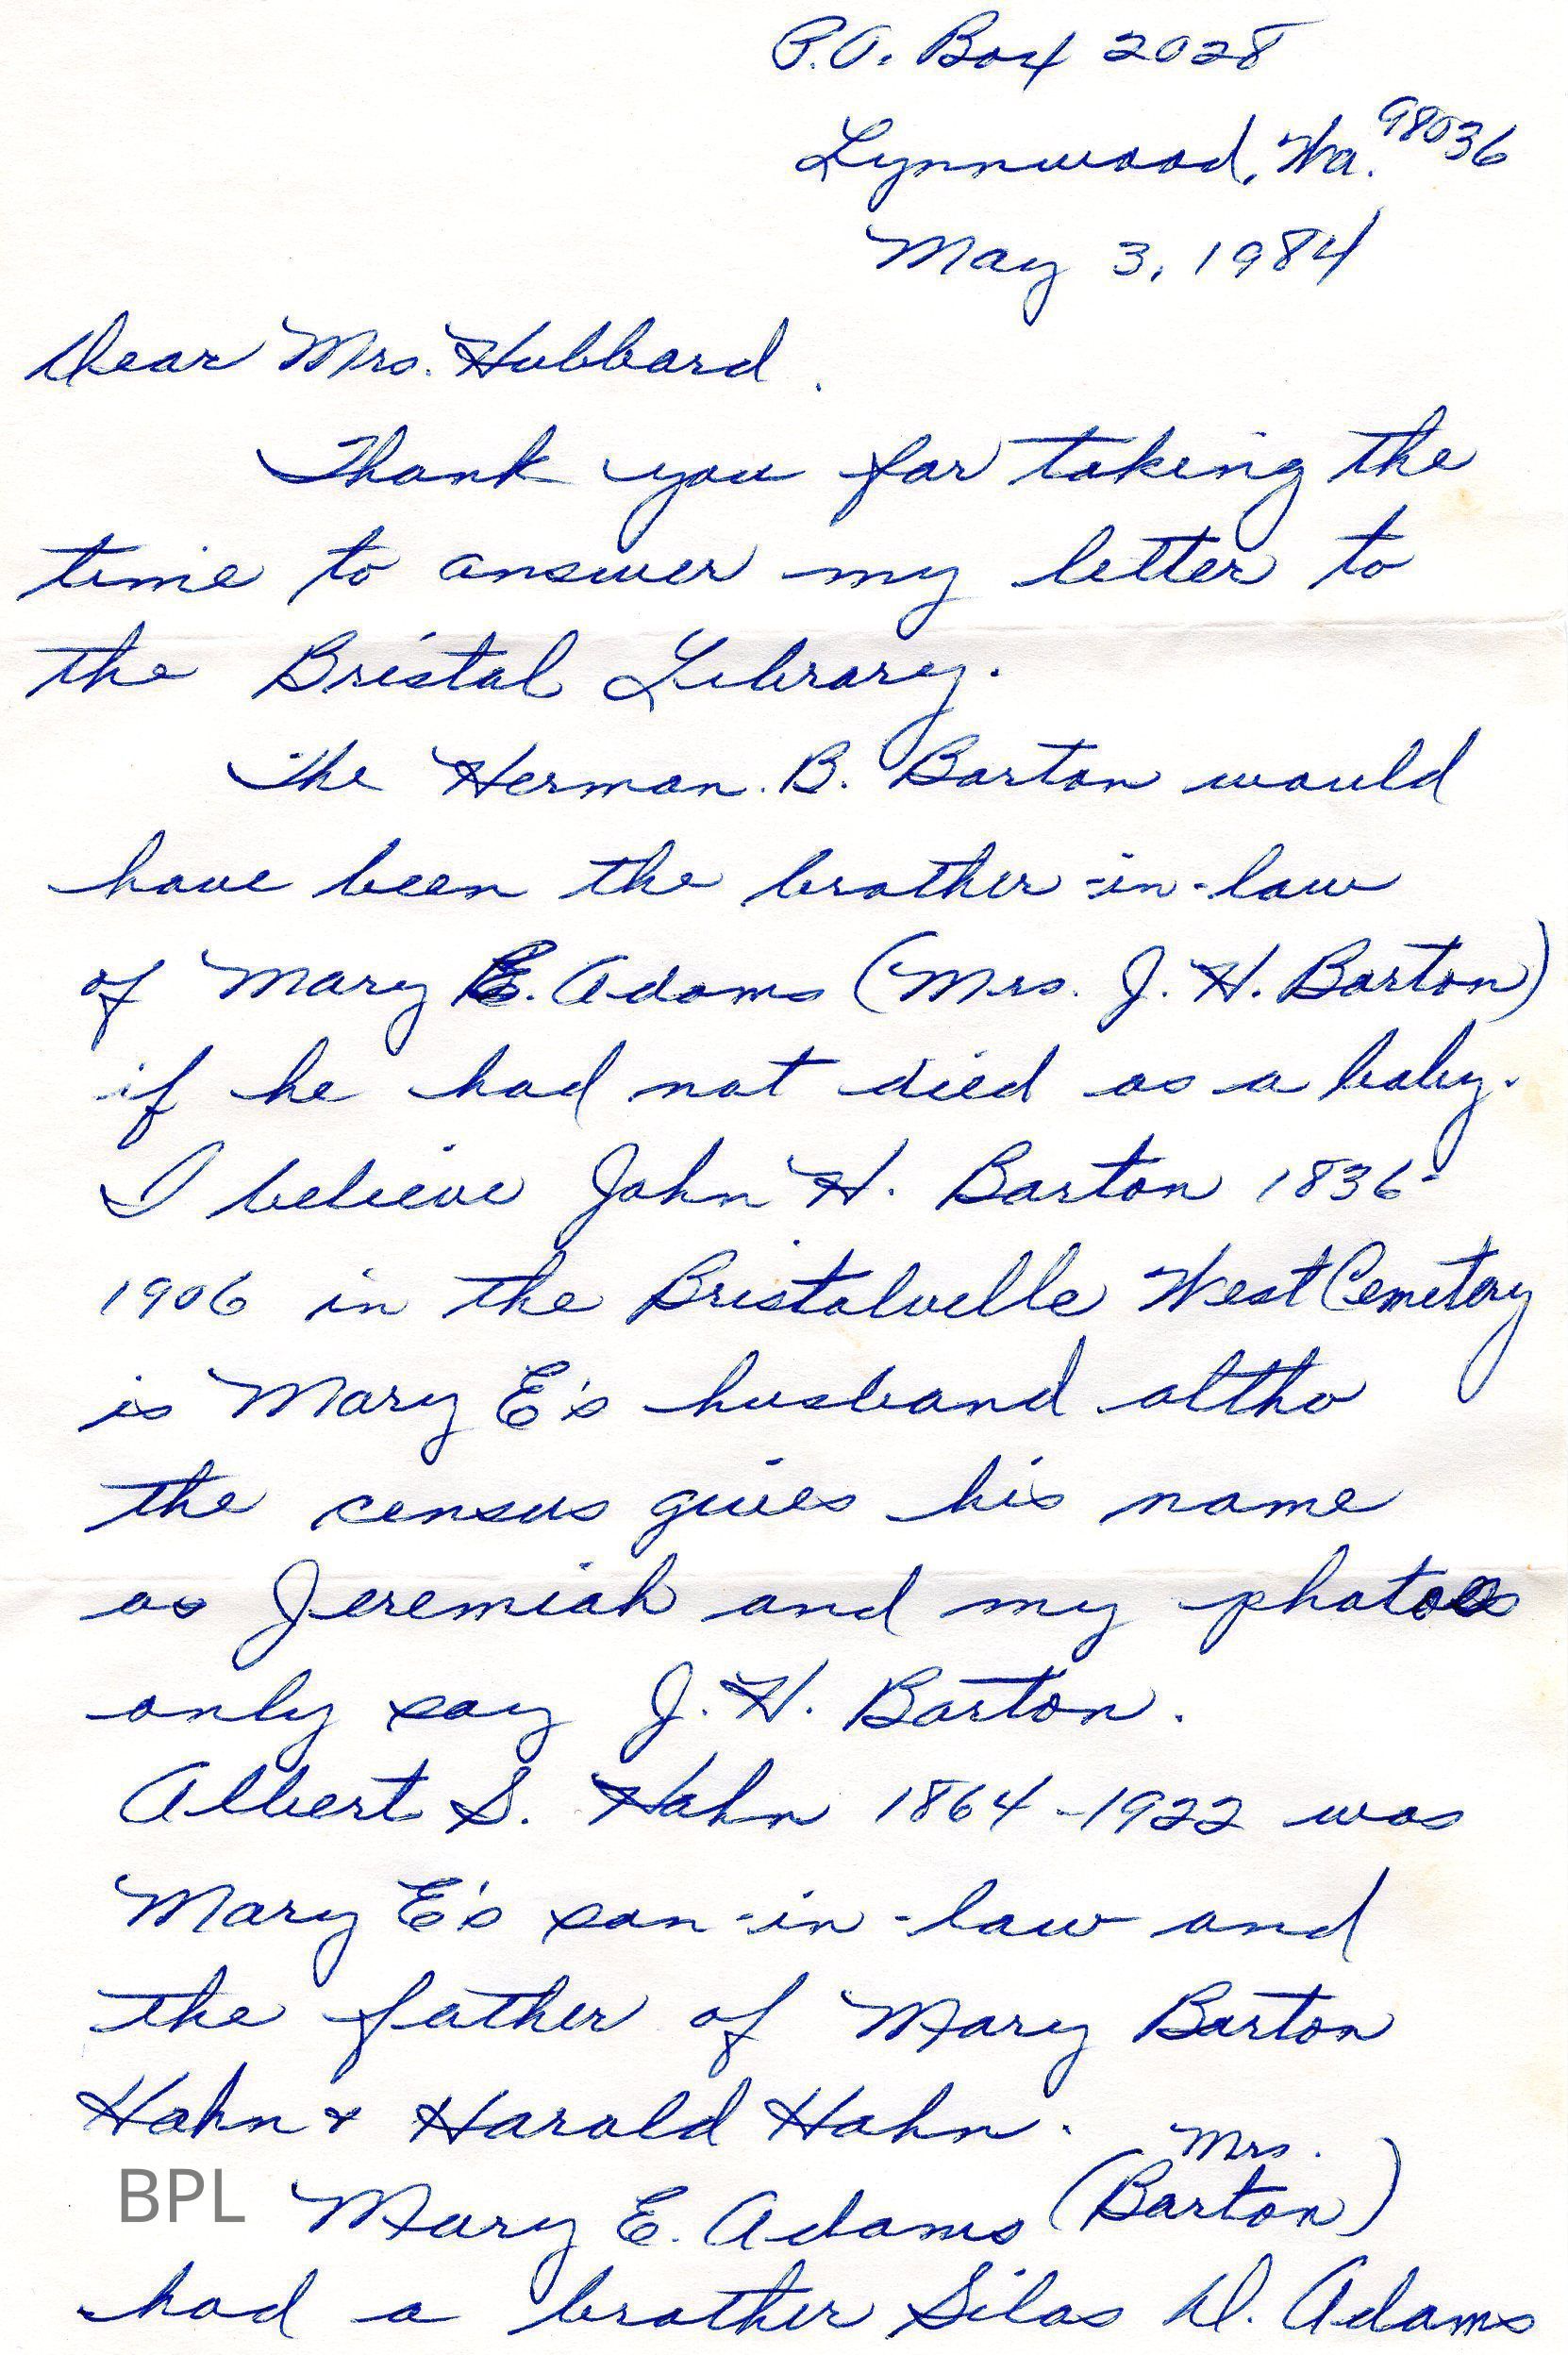 P.O. Box 2028
Lynnwood, Wa. 98036
May 3, 1984
Dear Mrs. Hubbard.
Thank you for taking the
time to answer my letter to
the Bristol Library.
The Herman. B. Barton would
have been the brother-in-law
of Mary E. Adams (Mrs. J. H. Barton)
if he had not died as a baby.
I believe John H. Barton 1836-
1906 in the Bristolville West Cemetery
is Mary E's husband altho
the census gives his name
as Jeremiah and my photos
only say J. H. Barton.
Albert S. Hahn 1864-1922 was
Mary E's son-in-law and
the father of Mary Barton
Hahn & Harold Hahn.
Mrs.
BPL Mary E. Adams (Barton)
had a brother Silas D. Adams